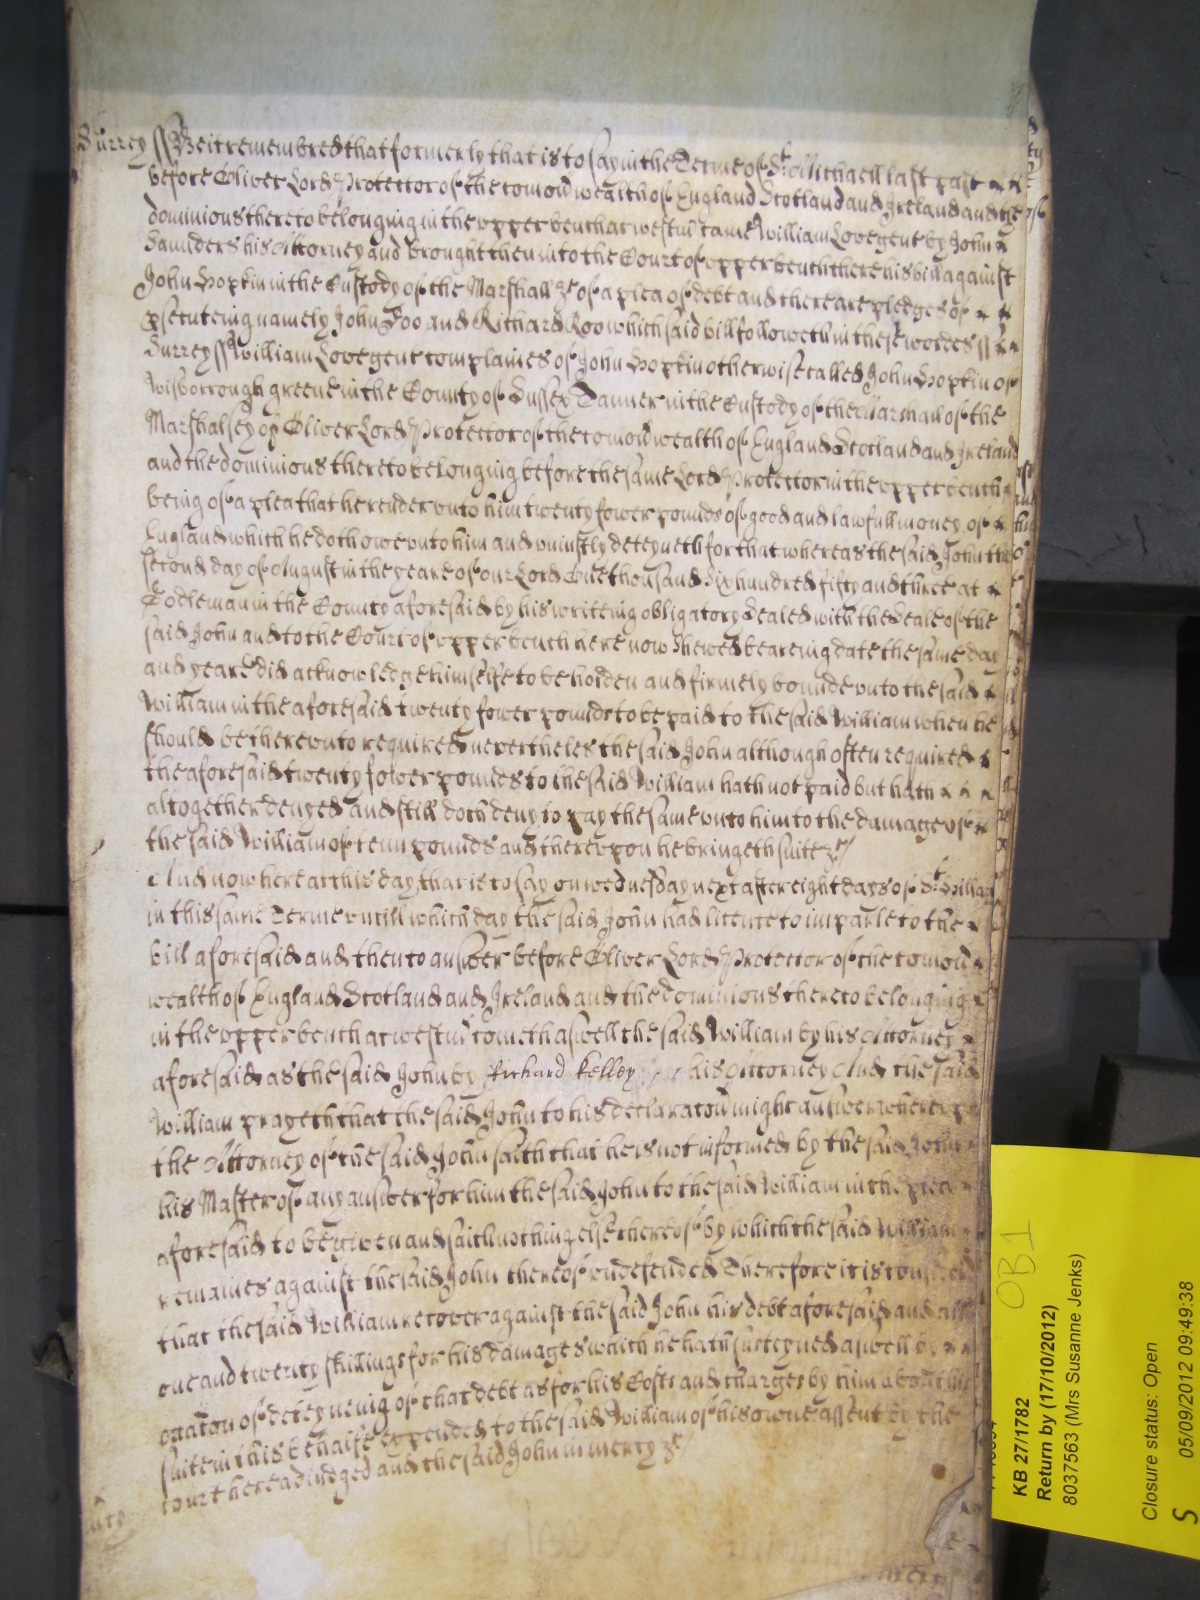 Surrey ss Be it remembred that formerly that is to say in the Terme of St. Michaell last past
before Oliver Lord Protector of the comon wealth of England Scotland and Ireland and the
dominions thereto belonging in the upper bench at westmr came William Lovegent by John
Saunders his Attorney and brought then into the Court of upper bench there his bill against
John Hopkin in the Custody of the Marshall &c of a plea of debt and there are pledges of
psecuteing namely John Doo and Richard Roo which said bill followeth in these wordes ss
Surrey ss William Lovegent complaines of John Hopkin otherwise called John Hopkin of
Wisborrough greene in the County of Sussex Tanner in the Custody of the Marshall of the
Marshalsey of Oliver Lord Protector of the comon wealth of England Scotland and Ireland
and the dominions thereto belonging before the same Lord Protector in the upper bench
being of a plea that he render unto him twenty fower pounds of good and lawfull money of
England which he doth owe unto him and uniustly deteyneth for that whereas the said John the
second day of August in the yeare of our Lord One thousand Six hundred fifty and three at
Godleman in the County aforesaid by his writeing obligatory Sealed with the Seale of the
said John and to the Court of upper bench here now shewed beareing date the same day
and yeare did acknowledge himselfe to be holden and firmely bounde unto the said
William in the aforesaid twenty fower pounds to be paid to the said William when he
should be thereunto required nevertheles the said John although often required
the aforesaid twenty fower pounds to the said William hath not paid but hath
altogether denyed and still doth deny to pay the same unto him to the damage of
the said William of tenn pounds and thereupon he bringeth suite &c
And now here at this day that is to say on wednesday next after eight days of St. Hillary
in this same Terme untill which day the said John had licence to imparle to the
bill aforesaid and then to answer before Oliver Lord Protector of the comon
wealth of England Scotland and Ireland and the dominions thereto belonging
in the upper bench at westmr cometh aswell the said William by his Attorney
aforesaid as the said John by Richard Kelley his Attorney And the said
William prayeth that the said John to his declaracon might answer whereupon
the Attorney of the said John saith that he is not informed by the said John
his Master of any answer for him the said John to the said William in the plea
aforesaid to be given and saith nothing else thereof by which the said William
remaines against the said John thereof undefended Therefore it is considered
that the said William recover against the said John his debt aforesaid and also
one and twenty shillings for his damages which he hath susteyned aswell by
occacon of deteyneing of that debt as for his Costs and charges by him about his
suite in this behalfe expended to the said William of his owne assent by the
court here adiudged and the said John in mercy &c
OB1
KB 27/1782
Return by (17/10/2012)
8037563 (Mrs Susanne Jenks)
Closure status: Open
S 05/09/2012 09:49:38